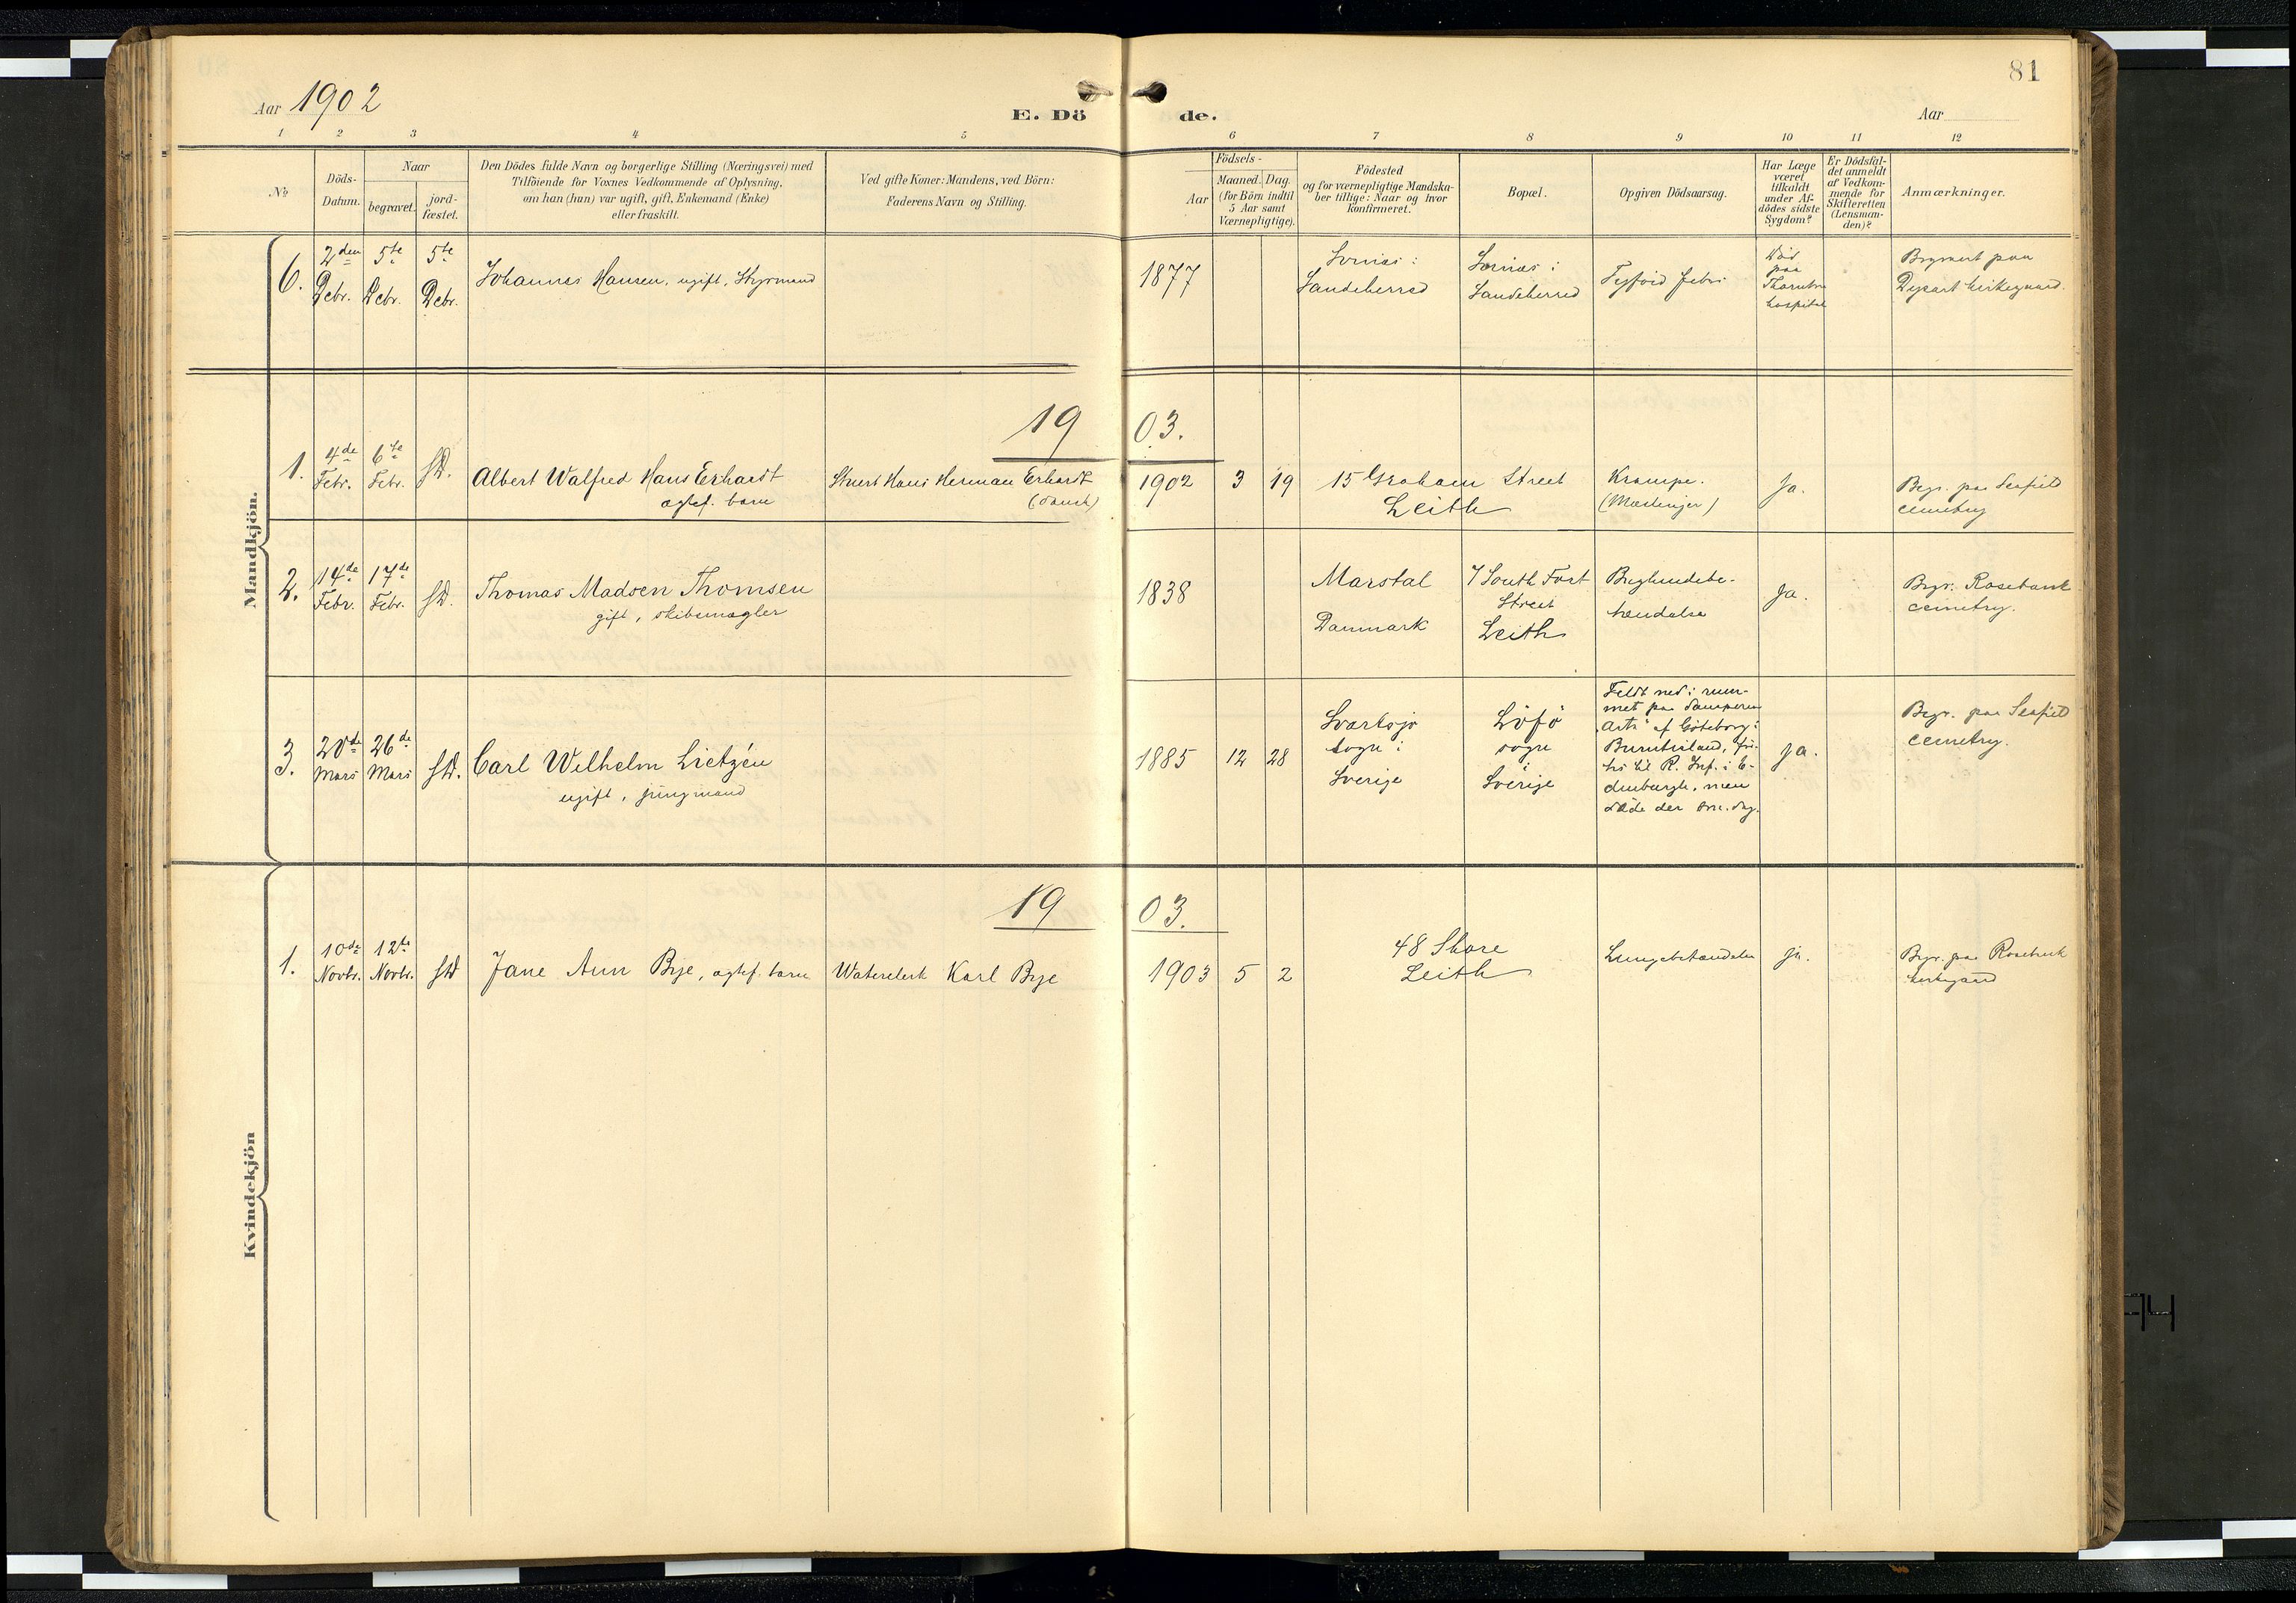 81
Aar 1902
E. Dö de.
Aar
1 2 3 4 5 6 7 8 9 10 11 12
No
Döds-
Datum.
Naar
begravet.
jord-
fæstet.
Den Dödes fulde Navn og borgerlige Stilling (Næringsvei) med
Tilföiende for Voxnes Vedkommende af Oplysning,
om han (hun) var ugift, gift, Enkemand (Enke)
eller fraskilt.
Ved gifte Koner: Mandens, ved Börn:
Faderens Navn og Stilling.
Födsels-
Aar
Maaned. Dag.
(for Börn indtil
5 Aar samt
Værnepligtige).
Födested
og for værnepligtige Mandska-
ber tillige: Naar og hvor
konfirmeret.
Bopæl.
Opgiven Dödsaarsag.
Har Læge
været
tilkaldt
under Af-
dödes sidste
Sygdom?
Er Dödsfal-
det anmeldt
af Vedkom-
mende for
Skifteretten
(Lensman-
den)?
Anmærkninger.
Mandkjön.
6.
2den
Debr.
5te
Debr.
5te
Debr.
Johannes Hansen, ugift, Styrmand
1877
Sandeherred
Sandeherred
Tyfoid febris
Död
paa
hospital
Begravet paa
Dysart kirkegaard.
19 03.
1.
4de
Febr.
6te
Febr.
sD.
Albert Walfred Hans Erhardt
ægtef. barn
Stuert Hans Herman Erhardt
(dansk)
1902 3 19
15 Graham Street
Leith
Krampe.
(Mæslinger)
Ja.
Begr. paa Seafield
cemetry
2.
14de
Febr.
17de
Febr.
sD.
Thomas Madsen Thomsen
gift, skibsmægler
1838
Marstal
Danmark
7 South Fort
Street
Leith
Bryhindebe-
tændelse
Ja.
Begr. Rosebank
cemetry.
3.
20de
Mars
26de
Mars
sD.
Carl Wilhelm Lietzén
ugift, jungmand
1885 12 28
Svartsjö
sogn i
Sverige
Löfö
sogn
i
Sverige
Feldt ned i rum-
met paa damperen
af Göteborg i
Burntisland,
til R. Inf. i E-
dinburgh, men
döde der om. dag.
Ja.
Begr. paa Seafield
cemetry.
Kvindekjön
19 03.
1.
10de
Novbr.
12te
Novbr.
sD
Jane Ann Bye, ægtef. barn
Waterclerk Karl Bye
1903 5 2
48 Shore
Leith
Lungebetændelse
ja.
Begr. paa Rosebank
kirkegaard